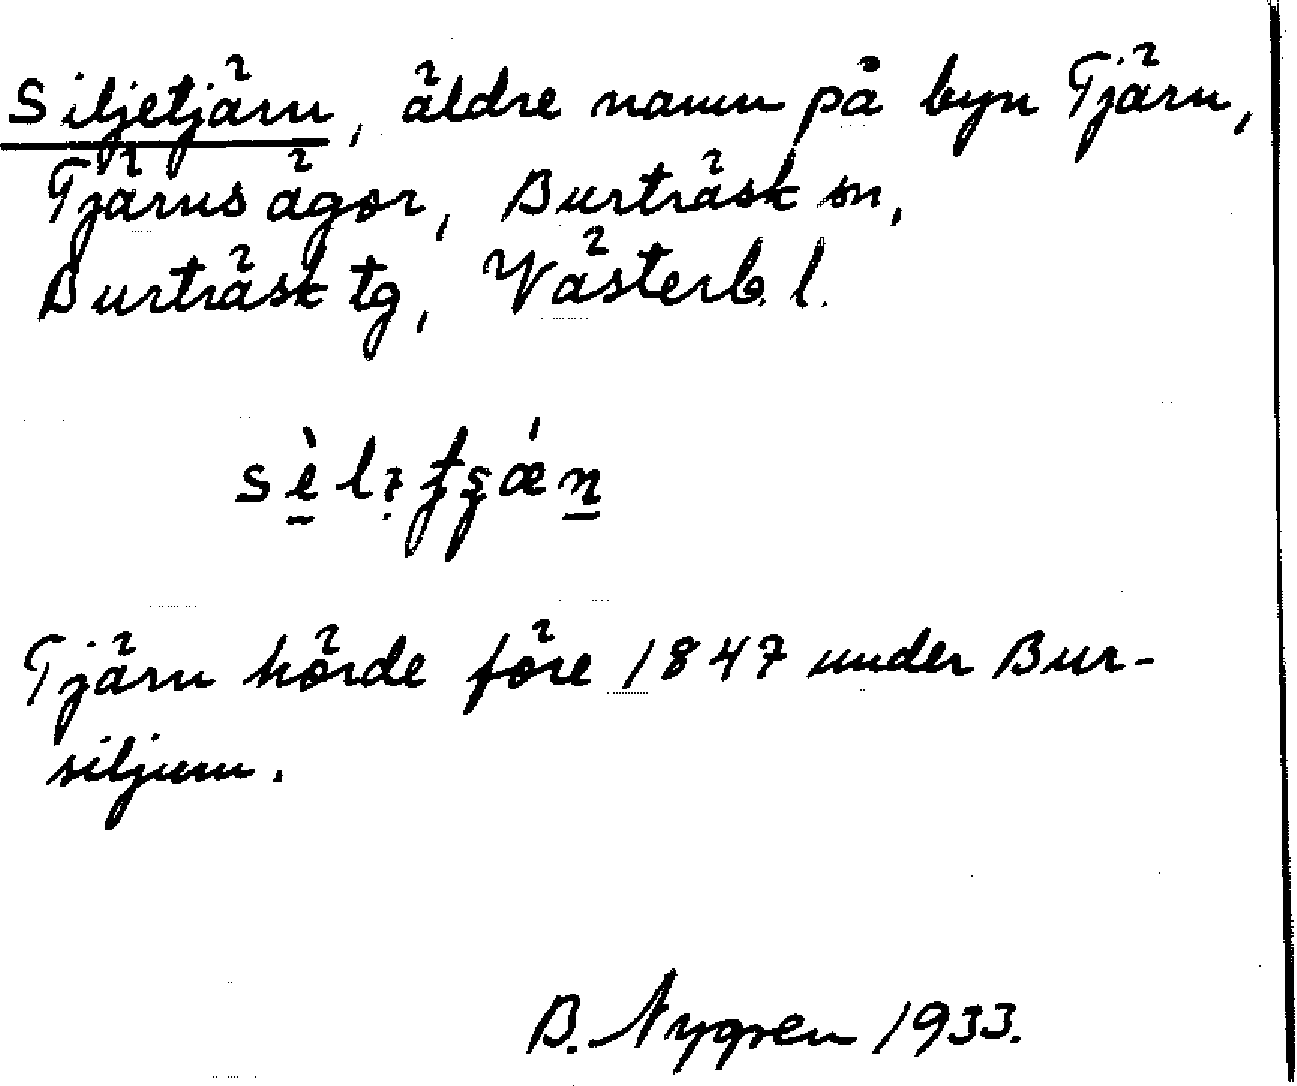 Siljetjärn, äldre namn på byn Tjärn,
Tjärns ägor, Burträsk sn,
Burträsk tg, Västerb. l.
Tjärn hörde före 1847 under Bur-
siljum.
B. Nygren 1933.